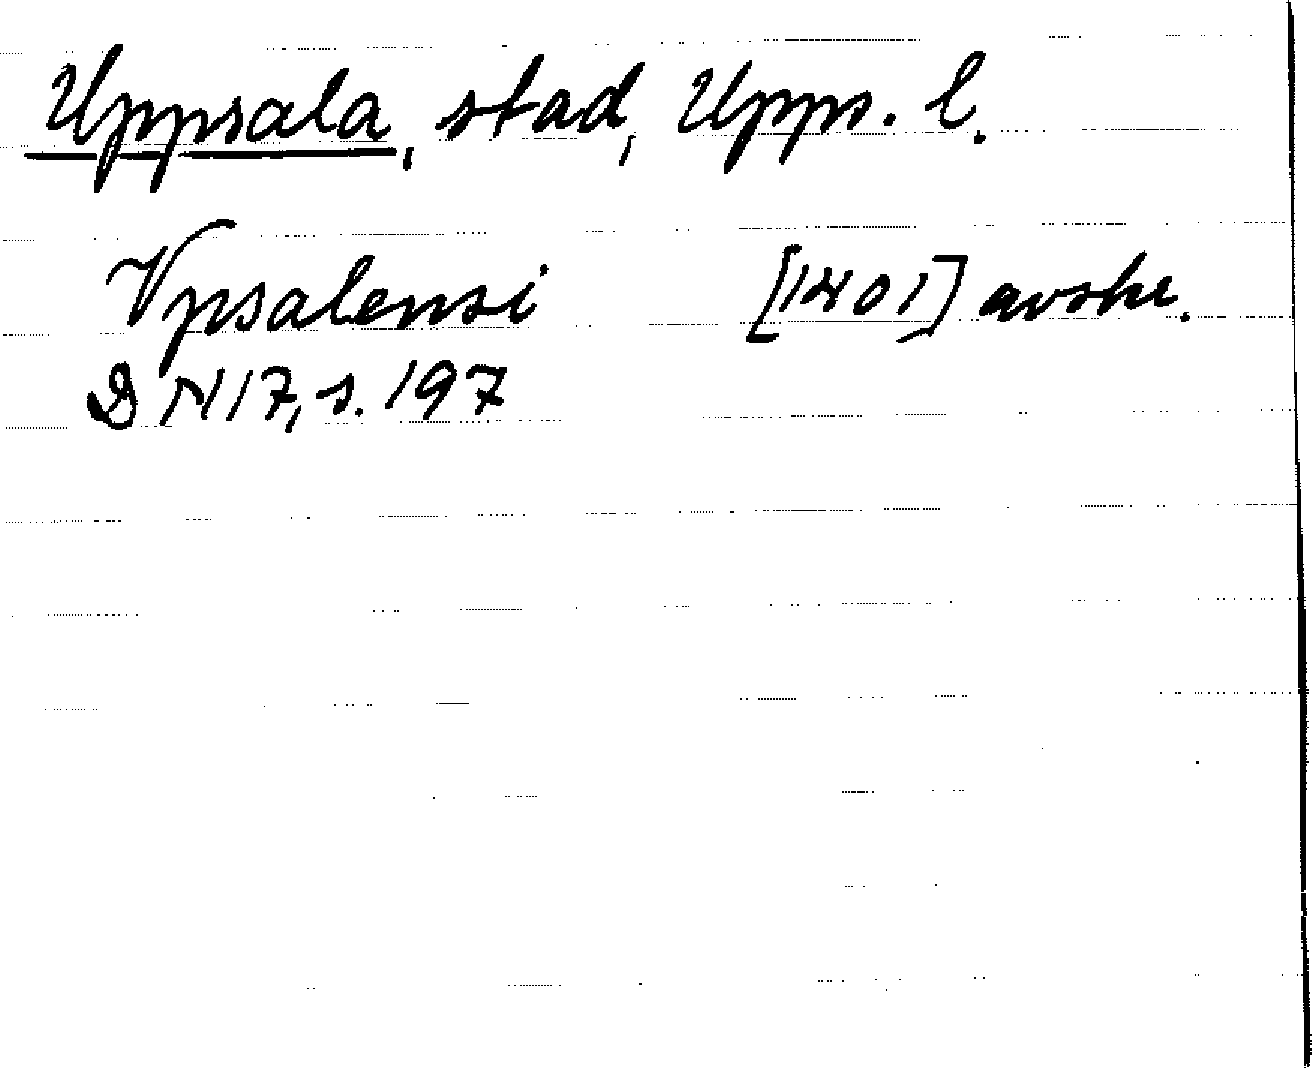 Uppsala, stad, Upps. l.
Vpsalensi [1401] avskr.
DN 17, s. 197